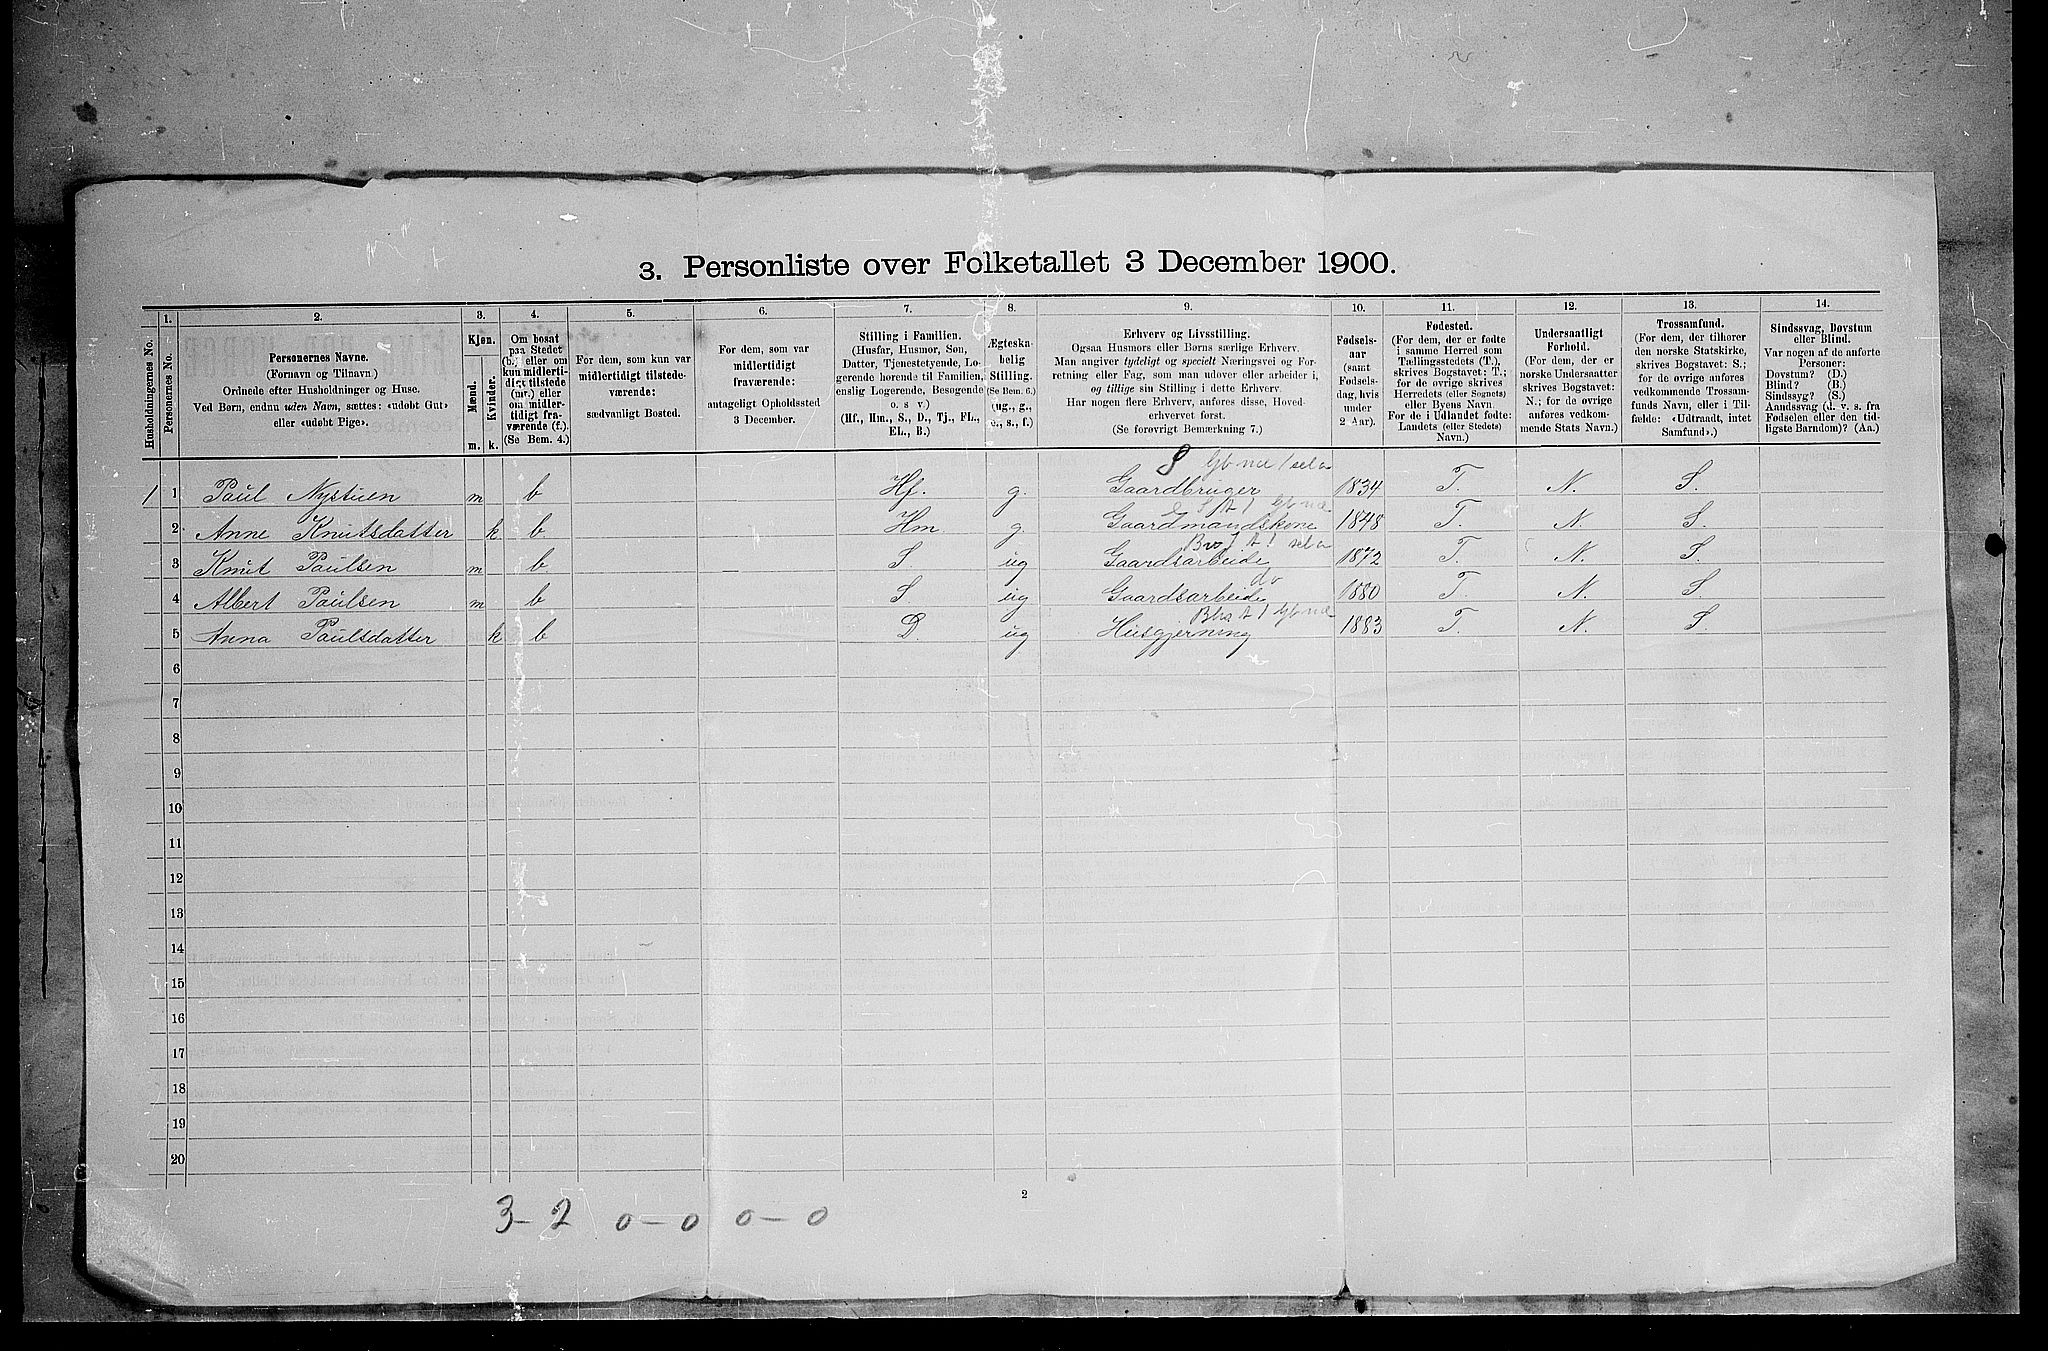 3. Personliste over Folketallet 3 December 1900.
1. 2. 3. 4. 5. 6. 7. 8. 9. 10. 11. 12. 13. 14.
Husholdningernes No.
Personernes No.
Personernes Navne.
(Fornavn og Tilnavn.)
Ordnede efter Husholdninger og Huse.
Ved Børn, endnu uden Navn, sættes: «udøbt Gut»
eller «udøbt Pige».
Kjøn.
Mænd.
Kvinder.
m. k.
Om bosat
paa Stedet
(b.) eller om
kun midlerti-
digt tilstede
(mt.) eller
om midler-
tidigt fra-
værende (f.).
(Se Bem. 4.)
For dem, som kun var
midlertidigt tilstede-
værende:
sædvanligt Bosted.
For dem, som var
midlertidigt
fraværende:
antageligt Opholdssted
3 December.
Stilling i Familien.
(Husfar, Husmor, Søn,
Datter, Tjenestetyende, Lo-
gerende hørende til Familien,
enslig Logerende, Besøgende
o. s v.)
(Hf., Hm., S., D., Tj., FL.,
EL., B.)
Ægteska-
belig
Stilling.
(Se Bem. 6.)
(ug., g.,
e., s., f.)
Erhverv og Livsstilling.
Ogsaa Husmors eller Børns særlige Erhverv.
Man angiver tydeligt og specielt Næringsvei og For-
retning eller Fag, som man udøver eller arbeider i,
og tillige sin Stilling i dette Erhverv.
Har nogen flere Erhverv, anføres disse, Hoved-
erhvervet først.
(Se forøvrigt Bemærkning 7.)
Fødsels-
aar
(samt
Fødsels-
dag, hvis
under
2 Aar).
Fødested.
(For dem, der er fødte
i samme Herred som
Tællingsstedets (T.),
skrives Bogstavet: T.;
for de øvrige skrives
Herredets (eller Sognets)
eller Byens Navn.
For de i Udlandet fødte:
Landets (eller Stedets)
Navn.)
Undersaatligt
Forhold.
(For dem, der er
norske Undersaatter
skrives Bogstavet:
N.; for de øvrige
anføres vedkom-
mende Stats Navn.)
Trossamfund.
(For dem, der tilhører
den norske Statskirke,
skrives Bogstavet: S.;
for de øvrige anføres
vedkommende Trossam-
funds Navn, eller i Til-
fælde: «Udtraadt, intet
Samfund».)
Sindssvag, Døvstum
eller Blind.
Var nogen af de anførte
Personer:
Døvstum? (D.)
Blind? (B.)
Sindssyg? (S.)
Aandssvag (d. v. s. fra
Fødselen eller den tid-
ligste Barndom)? (Aa.)
1 1 Paul Nystuen m b Hf. g. Gaardbruger 1834 T. N. S.
2 Anne Knutsdatter k b Hm g. Gaardmandskone 1848 T. N. S.
3 Knut Paulsen m b S. ug Gaardsarbeide 1872 T. N. S.
do
4 Albert Paulsen m b S. ug Gaardsarbeide 1880 T. N. S.
5 Anna Paulsdatter k b D ug Husgjerning 1883 T. N. S.
6
7
8
9
10
11
12
13
14
15
16
17
18
19
20
2
3-2 0-0 0-0